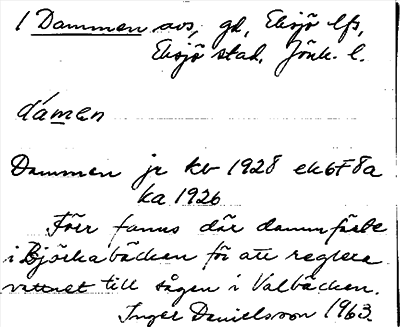 1 Dammen avs, gd, Eksjö lfs,
Eksjö stad, Jönk. l.
dámen
Dammen jr kb 1928 ek 6F8a
ha 1926
Förr fanns där dammfäste
i Björkabäcken för att reglera
vattnet till sågen i Valbäcken.
Inger Danielsson 1963.